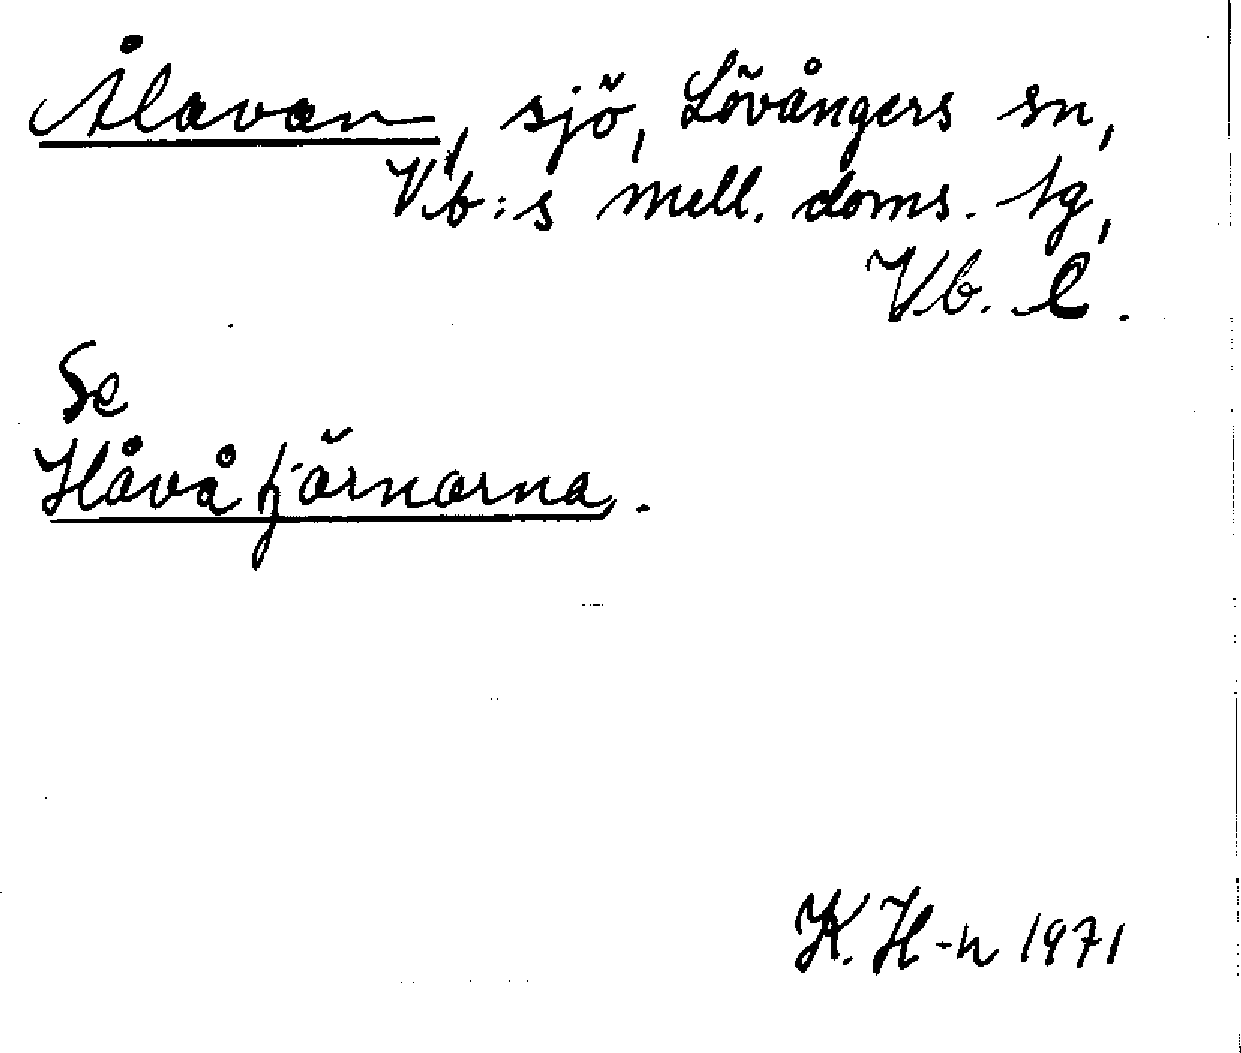 Ålavan, sjö, Lövångers sn,
Vb:s mell. doms. tg,
Vb. l.
Se
Håvåtjärnarna.
K. H-n 1971